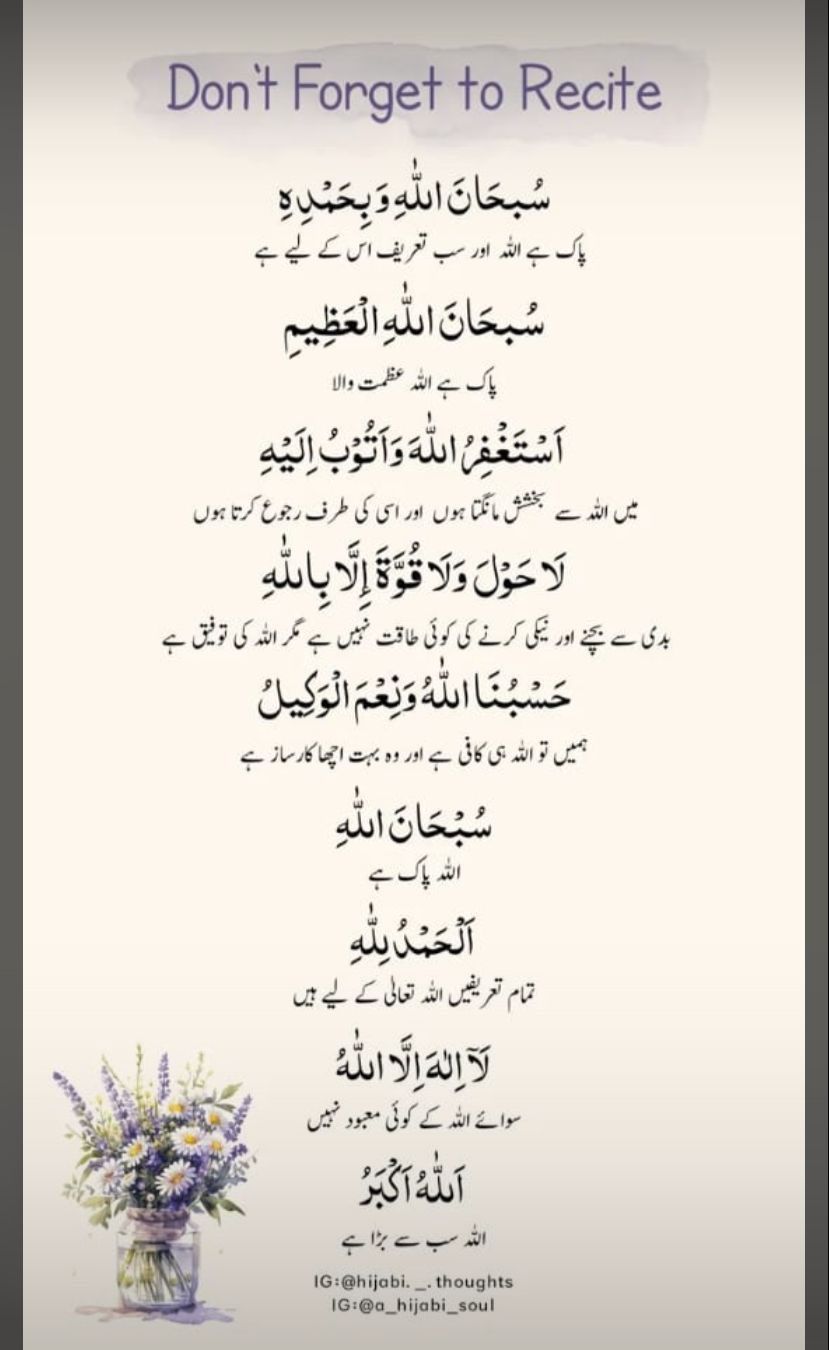 Don't Forget to Recite
سُبحَانَ اللّٰهِ وَبِحَمْدِہِ
پاک ہے اللہ اور سب تعریف اس کے لیے ہے
سُبحَانَ اللّٰهِ الْعَظِيمِ
پاک ہے اللہ عظمت والا
اَسْتَغْفِرُ اللّٰهَ وَاَتُوْبُ اِلَيْهِ
میں اللہ سے بخشش مانگتا ہوں اور اسی کی طرف رجوع کرتا ہوں
لَا حَوْلَ وَلَا قُوَّةَ إِلَّا بِاللّٰهِ
بدی سے بچنے اور نیکی کرنے کی کوئی طاقت نہیں ہے مگر اللہ کی توفیق ہے
حَسْبُنَا اللّٰهُ وَنِعْمَ الْوَكِيلُ
ہمیں تو اللہ ہی کافی ہے اور وہ بہت اچھا کارساز ہے
سُبْحَانَ اللّٰهِ
اللہ پاک ہے
اَلْحَمْدُ لِلّٰهِ
تمام تعریفیں اللہ تعالٰی کے لیے ہیں
لَآ اِلٰهَ اِلَّا اللّٰهُ
سوائے اللہ کے کوئی معبود نہیں
اَللّٰهُ اَكْبَرُ
اللہ سب سے بڑا ہے
IG:@hijabi._.thoughts
IG:@a_hijabi_soul